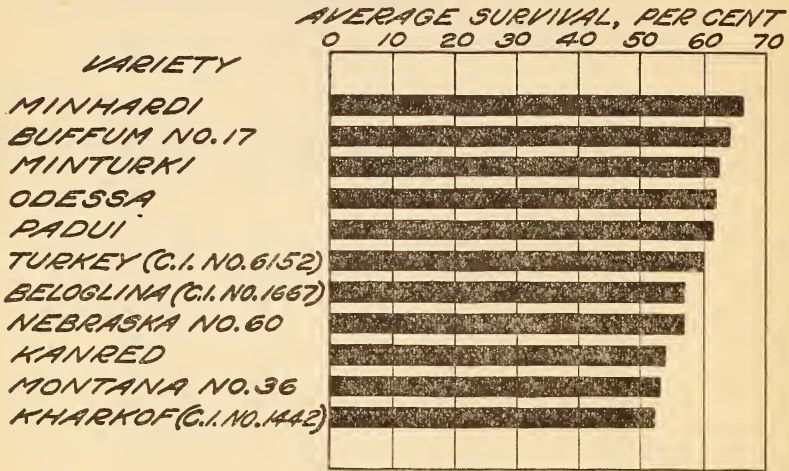 AVERAGE SURVIVAL, PER CENT
0 10 20 30 40 50 60 70
VARIETY
MINHARDI
BUFFUM NO.17
MINTURKI
ODESSA
PADUI
TURKEY (C.I. NO.6152)
BELOGLINA (C.I. NO.1667)
NEBRASKA NO.60
KANRED
MONTANA NO.36
KHARKOF (C.I. NO.1442)